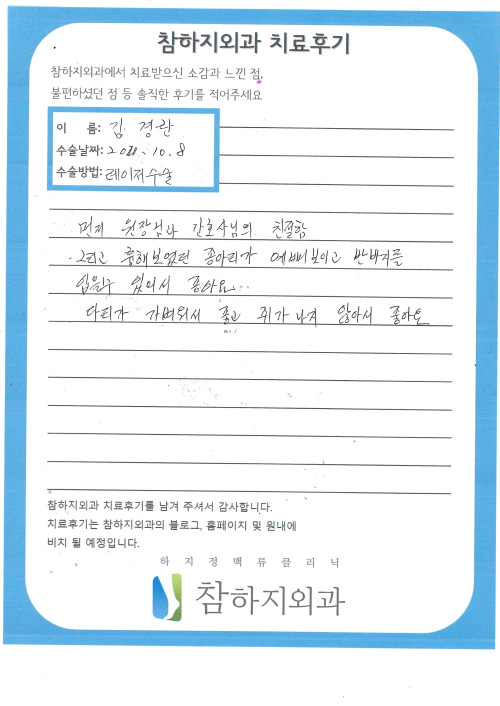 참하지외과 치료후기
참하지외과에서 치료받으신 소감과 느낀 점,
불편하셨던 점 등 솔직한 후기를 적어주세요
이 름: 김 경란
수술날짜: 2021. 10. 8
수술방법: 레이저수술
먼저 원장님과 간호사님의 친절함
그리고 흉해보였던 종아리가 예뻐보이고 반바지를
입을수 있어서 좋아요
다리가 가벼워서 좋고 쥐가 나지 않아서 좋아요
참하지외과 치료후기를 남겨 주셔서 감사합니다.
치료후기는 참하지외과의 블로그, 홈페이지 및 원내에
비치 될 예정입니다.
하지정맥류클리닉
참하지외과